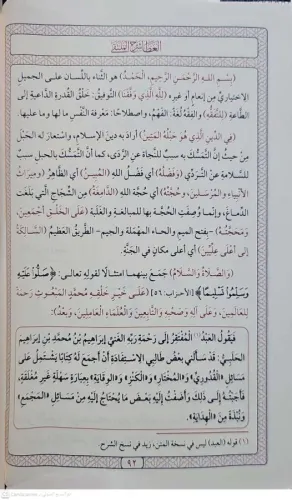 (بِسْمِ اللهِ الرَّحْمَنِ الرَّحِيمِ، الْحَمْدُ) هو الثَّناء باللِّسان على الجميل
الاختياريِّ من إنعام أو غيره (لِلَّهِ الَّذِي وَفَّقَنَا) التَّوفيق: خلق القُدرة الدَّاعية إلى
الطَّاعة (لِلتَّفَقُّهِ) والفِقهُ لُغةً: الفَهْم، واصطلاحًا: معرفة النَّفْس ما لها وما عليها.
(فِي الدِّينِ الَّذِي هُوَ حَبْلُهُ الْمَتِينُ) أراد به دين الإسلام، واستعار له الحبل
مِن حيثُ إنَّ التَّمسُّك به سببٌ للنَّجاة عن الرَّدى، كما أنَّ التَّمسُّك بالحبل سببٌ
للسَّلامة عن التَّردِّي (وَفَضْلُهُ) أي فضلُ الله (الْمُبِينُ) أي الظَّاهر (وَمِيرَاثُ
الأَنْبِيَاءِ وَالْمُرْسَلِينَ، وَحُجَّتُهُ) أي حُجَّة الله (الدَّامِغَةُ) من الشِّجَاج الَّتي بلغت
الدِّماغ، وإنَّما وُصِفت الحُجَّة بها للمبالغة والغَلَبة (عَلَى الْخَلْقِ أَجْمَعِينَ،
وَمَحَجَّتُهُ) ـ بفتح الميم والحاء المهملة والجيم ـ الطَّريق العظيم (السَّالِكَةُ
إِلَى أَعْلَى عِلِّيِّينَ) أي أعلى مكان في الجنَّة.
(وَالصَّلَاةُ وَالسَّلَامُ) جَمَع بينهما امتثالًا لقوله تعالى: ﴿صَلُّوا عَلَيْهِ
وَسَلِّمُوا تَسْلِيمًا﴾ [الأحزاب: ٥٦] (عَلَى خَيْرِ خَلْقِهِ مُحَمَّدٍ الْمَبْعُوثِ رَحْمَةً
لِلْعَالَمِينَ، وَعَلَى آلِهِ وَصَحْبِهِ وَالتَّابِعِينَ وَالْعُلَمَاءِ الْعَامِلِينَ، وَبَعْدُ):
فَيَقُولُ الْعَبْدُ(١) الْمُفْتَقِرُ إِلَى رَحْمَةِ رَبِّهِ الْغَنِيِّ إِبْرَاهِيمُ بْنُ مُحَمَّدِ بْنِ إِبْرَاهِيمَ
الْحَلَبِيُّ: قَدْ سَأَلَنِي بَعْضُ طَالِبِي الِاسْتِفَادَةِ أَنْ أَجْمَعَ لَهُ كِتَابًا يَشْتَمِلُ عَلَى
مَسَائِلِ «الْقُدُورِيِّ» وَ«الْمُخْتَارِ» وَ«الْكَنْزِ» وَ«الْوِقَايَةِ» بِعِبَارَةٍ سَهْلَةٍ غَيْرِ مُغْلَقَةٍ،
فَأَجَبْتُهُ إِلَى ذَلِكَ وَأَضَفْتُ إِلَيْهِ بَعْضَ مَا يُحْتَاجُ إِلَيْهِ مِنْ مَسَائِلِ «الْمَجْمَعِ»
وَنُبْذَةً مِنَ «الْهِدَايَةِ».
(١) قوله (العبد) ليس في نسخة المتن، زيد في نسخ الشرح.
٩٢